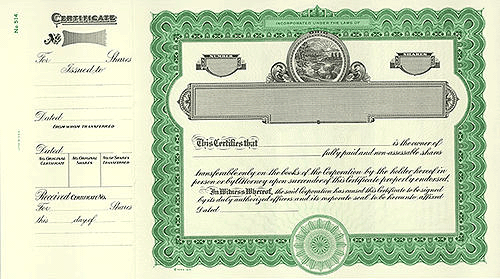 No 514
CERTIFICATE
No
For Shares
Issued to
Dated
FROM WHOM TRANSFERRED
Dated
NO. ORIGINAL CERTIFICATE
NO. ORIGINAL SHARES
NO. OF SHARES TRANSFERRED
Received CERTIFICATE NO.
For Shares
this day of
INCORPORATED UNDER THE LAWS OF
NUMBER
SHARES
This Certifies that is the owner of
fully paid and non-assessable shares
transferable only on the books of the Corporation by the holder hereof in
person or by Attorney upon surrender of this Certificate properly endorsed.
In Witness Whereof, the said Corporation has caused this Certificate to be signed
by its duly authorized officers and its corporate seal to be hereunto affixed
Dated